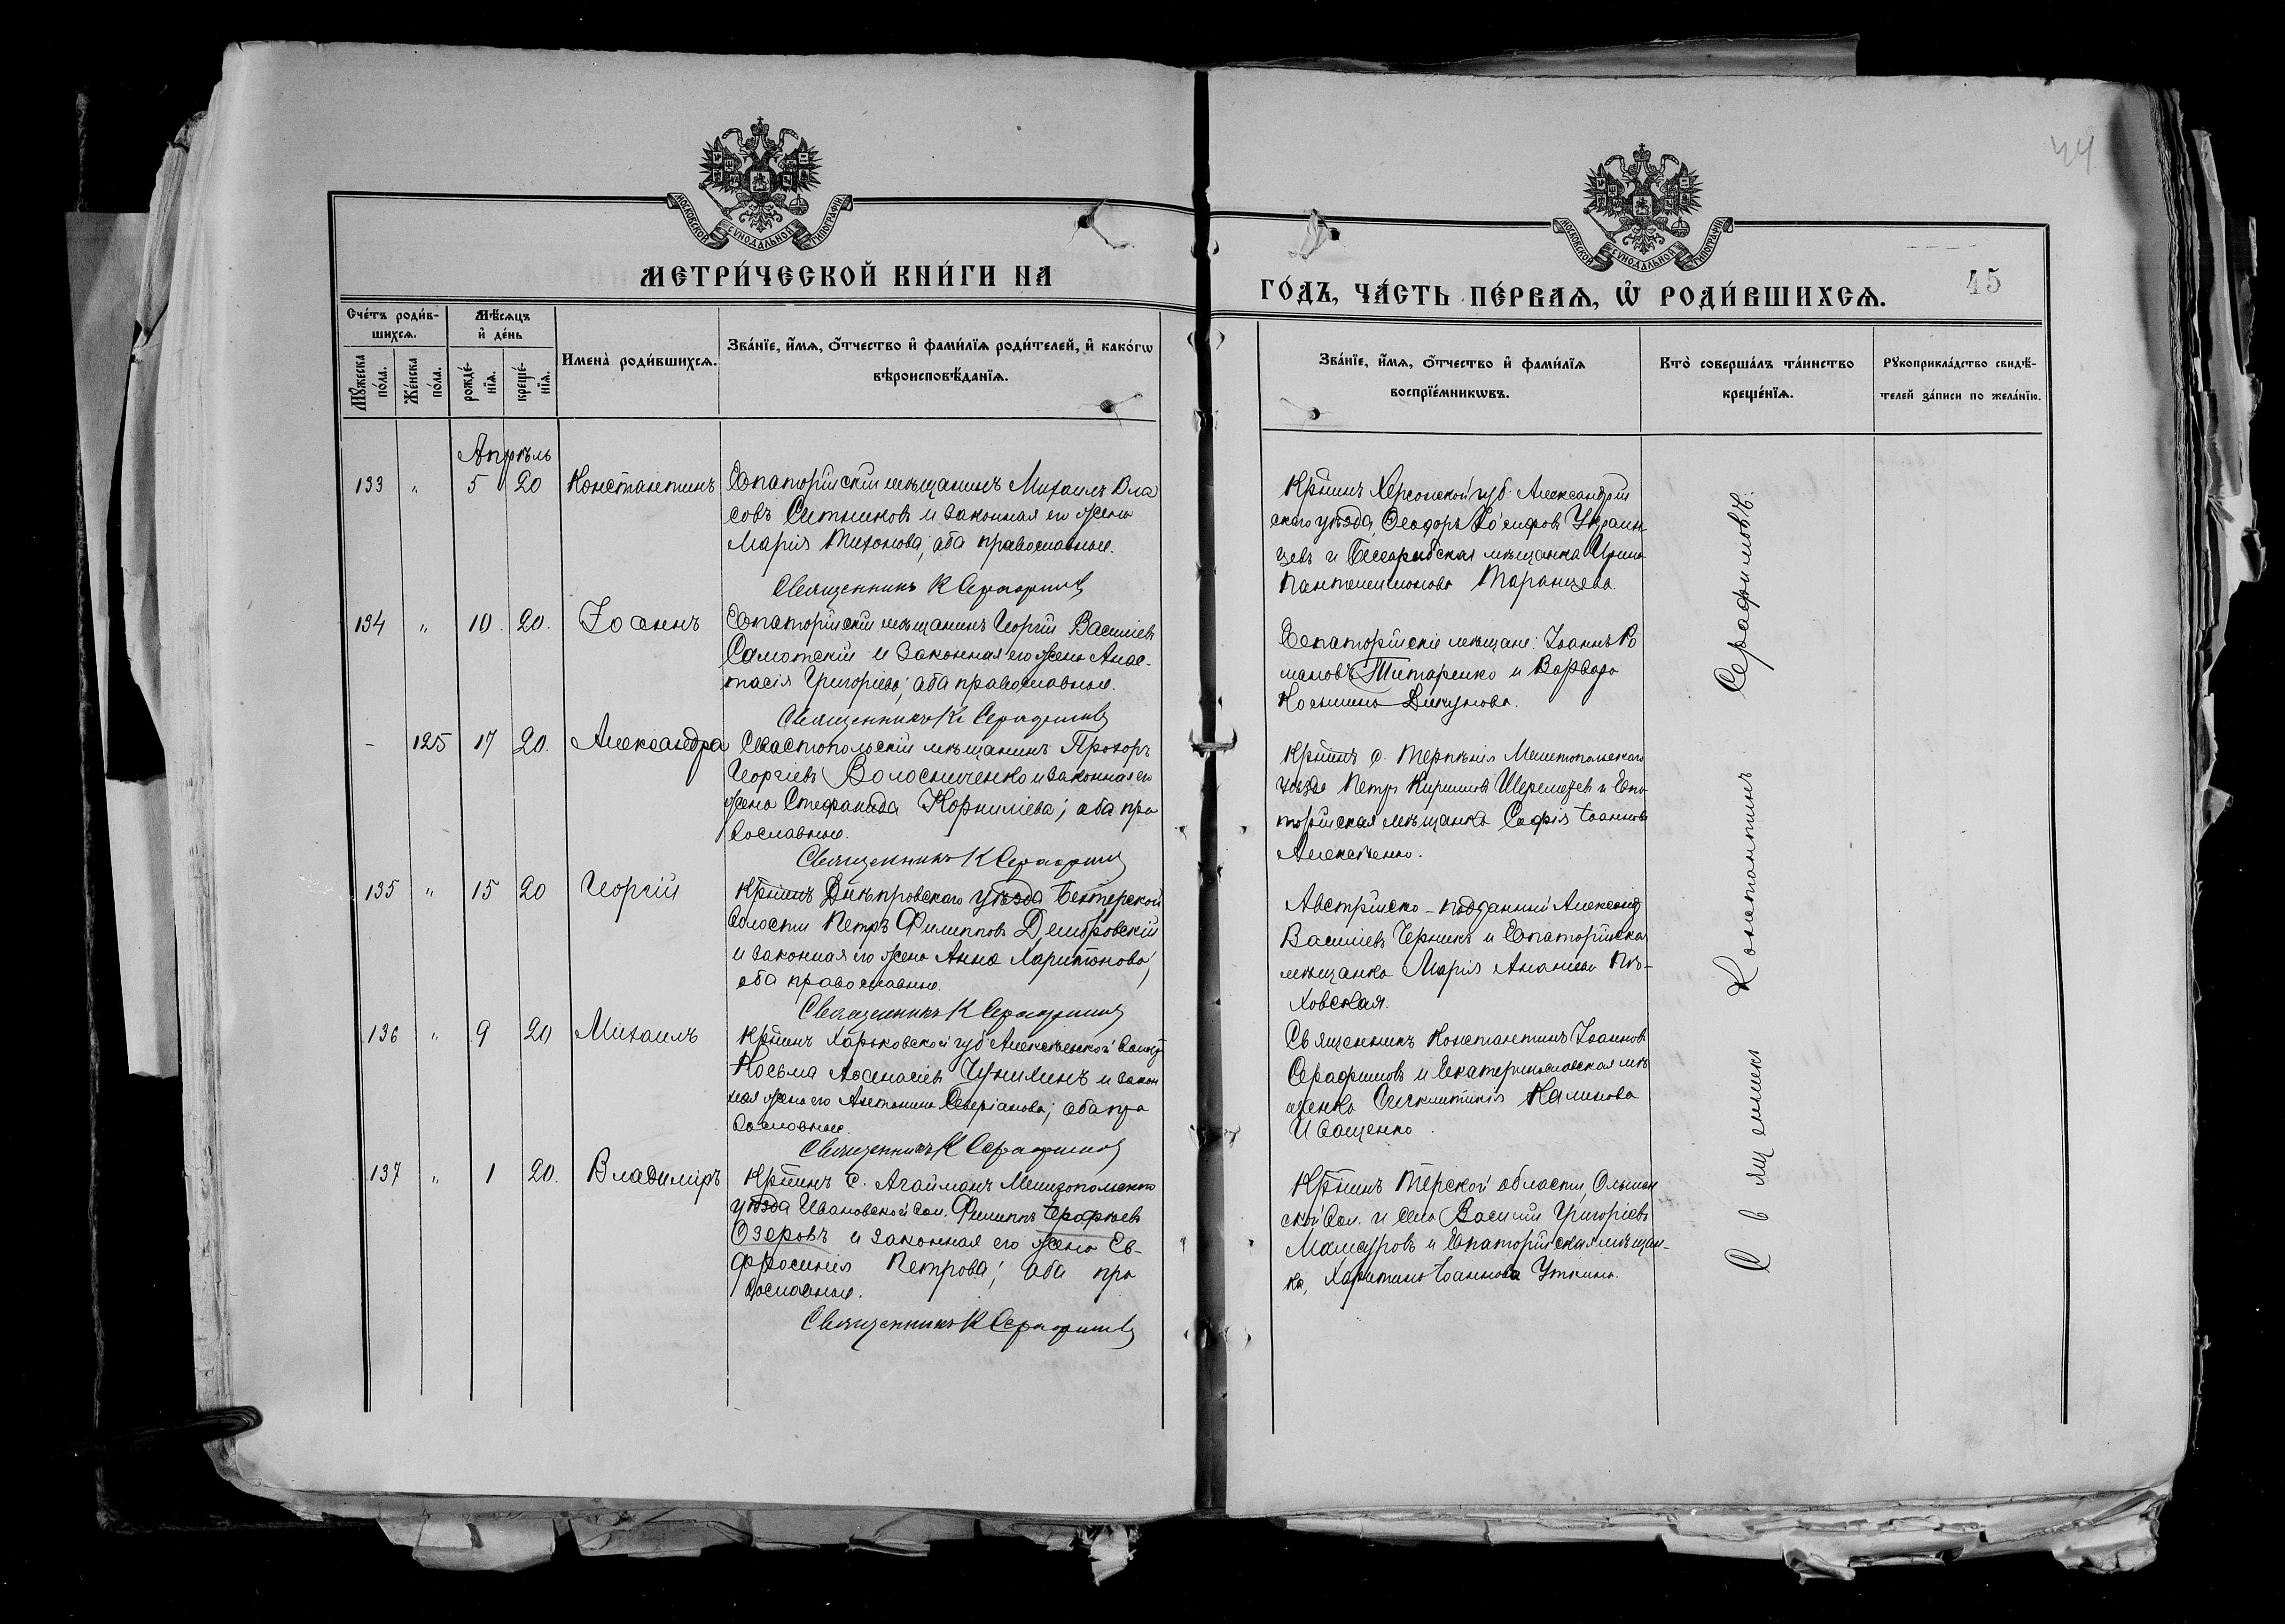 44
МОСКОВСКОЙ СѴНОДАЛЬНОЙ ТИПОГРАФІИ
МОСКОВСКОЙ СѴНОДАЛЬНОЙ ТИПОГРАФІИ
МЕТРИ́ЧЕСКОЙ КНИ́ГИ НА
ГО́ДЪ, ЧА́СТЬ ПЕ́РВАѦ, Ѡ҆ РОДИ́ВШИХСѦ.
45
Сче́тъ роди́в-
шихсѧ.
Мѣ́сѧцъ
и҆ де́нь
Мꙋ́жеска
по́ла.
Же́нска
по́ла.
рожде́-
нїѧ.
креще́-
нїѧ.
Имена̀ роди́вшихсѧ.
Зва́нїе, и҆́мѧ, ѻ҆́тчество и҆ фами́лїѧ роди́телей, и҆ како́гѡ
вѣроисповѣ́данїѧ.
Зва́нїе, и҆́мѧ, ѻ҆́тчество и҆ фами́лїѧ
воспрїе́мникѡвъ.
Кто̀ соверша́лъ та́инство
креще́нїѧ.
Рꙋкоприкла́дство свидѣ́-
телей за́писи по жела́нїю.
Апрѣль
133 " 5 20 Константинъ
Евпаторійскій мѣщанинъ Михаилъ Вла
совъ Ситниковъ и законная его жена
Марія Тихонова; оба православные.
Священникъ К Серафимовъ
Крінинъ Херсонской губ. Александрій
скаго уѣзда Ѳеодоръ Іосифовъ Украин
цевъ и Бессарабская мѣщанка Ирина
Пантелеимонова Таранцева.
134 " 10. 20. Іоаннъ
Евпаторійскій мѣщанинъ Георгій Василіевъ
Самотскій и законная его жена Анас-
тасія Григорьева; оба православные.
Священникъ К Серафимовъ
Евпаторійскіе мѣщане: Іоаннъ Ро
мановъ Титаренко и Варвара
Косьмина Дикунова.
- 125 17 20. Александра
Севастопольскій мѣщанинъ Прохоръ
Георгіевъ Волосниченко и законная его
жена Стефанида Корниліева; оба пра
вославные.
Священникъ К Серафимовъ
Крінинъ с. Терпѣнія Мелитопольскаго
уѣзда Петръ Кирилловъ Шереметев и Евпа
торійская мѣщанка Софія Іоаннова
Алексѣенко.
135 " 15 20 Георгій
Крінинъ Днѣпровскаго уѣзда Бехтерской
волости Петръ Филипповъ Домбровскій
и законная его жена Анна Харитонова;
оба православные.
Священникъ К Серафимовъ
Австрійско-подданный Александръ
Василіевъ Черникъ и Евпаторійская
мѣщанка Марія Ананьева Пѣ-
ховская.
136 " 9 20 Михаилъ
Крінинъ Харьковской губ Алексѣевской волости
Косьма Аѳанасіевъ Чунихинъ и закон
ная жена его Антонина Северіанова; оба пра
вославные.
Священникъ К Серафимовъ
Священникъ Константинъ Іоанновъ
Серафимовъ и Екатеринославская мѣ
щанка Синклитикія Калинова
Иващенко.
137 " 1 20. Владиміръ
Крінинъ с. Агайманъ Мелитопольскаго
уѣзда Ивановской вол. Филиппъ Ерофѣевъ
Озеровъ и законная его жена Ев-
фросинія Петрова; оба пра
вославные.
Священникъ К Серафимовъ
Крінинъ Терской области,
ской вол. и села Василій Григорьевъ
и Евпаторійская мѣщан-
ка, Харитина Іоаннова Уткина.
Священникъ Константинъ Серафимовъ.